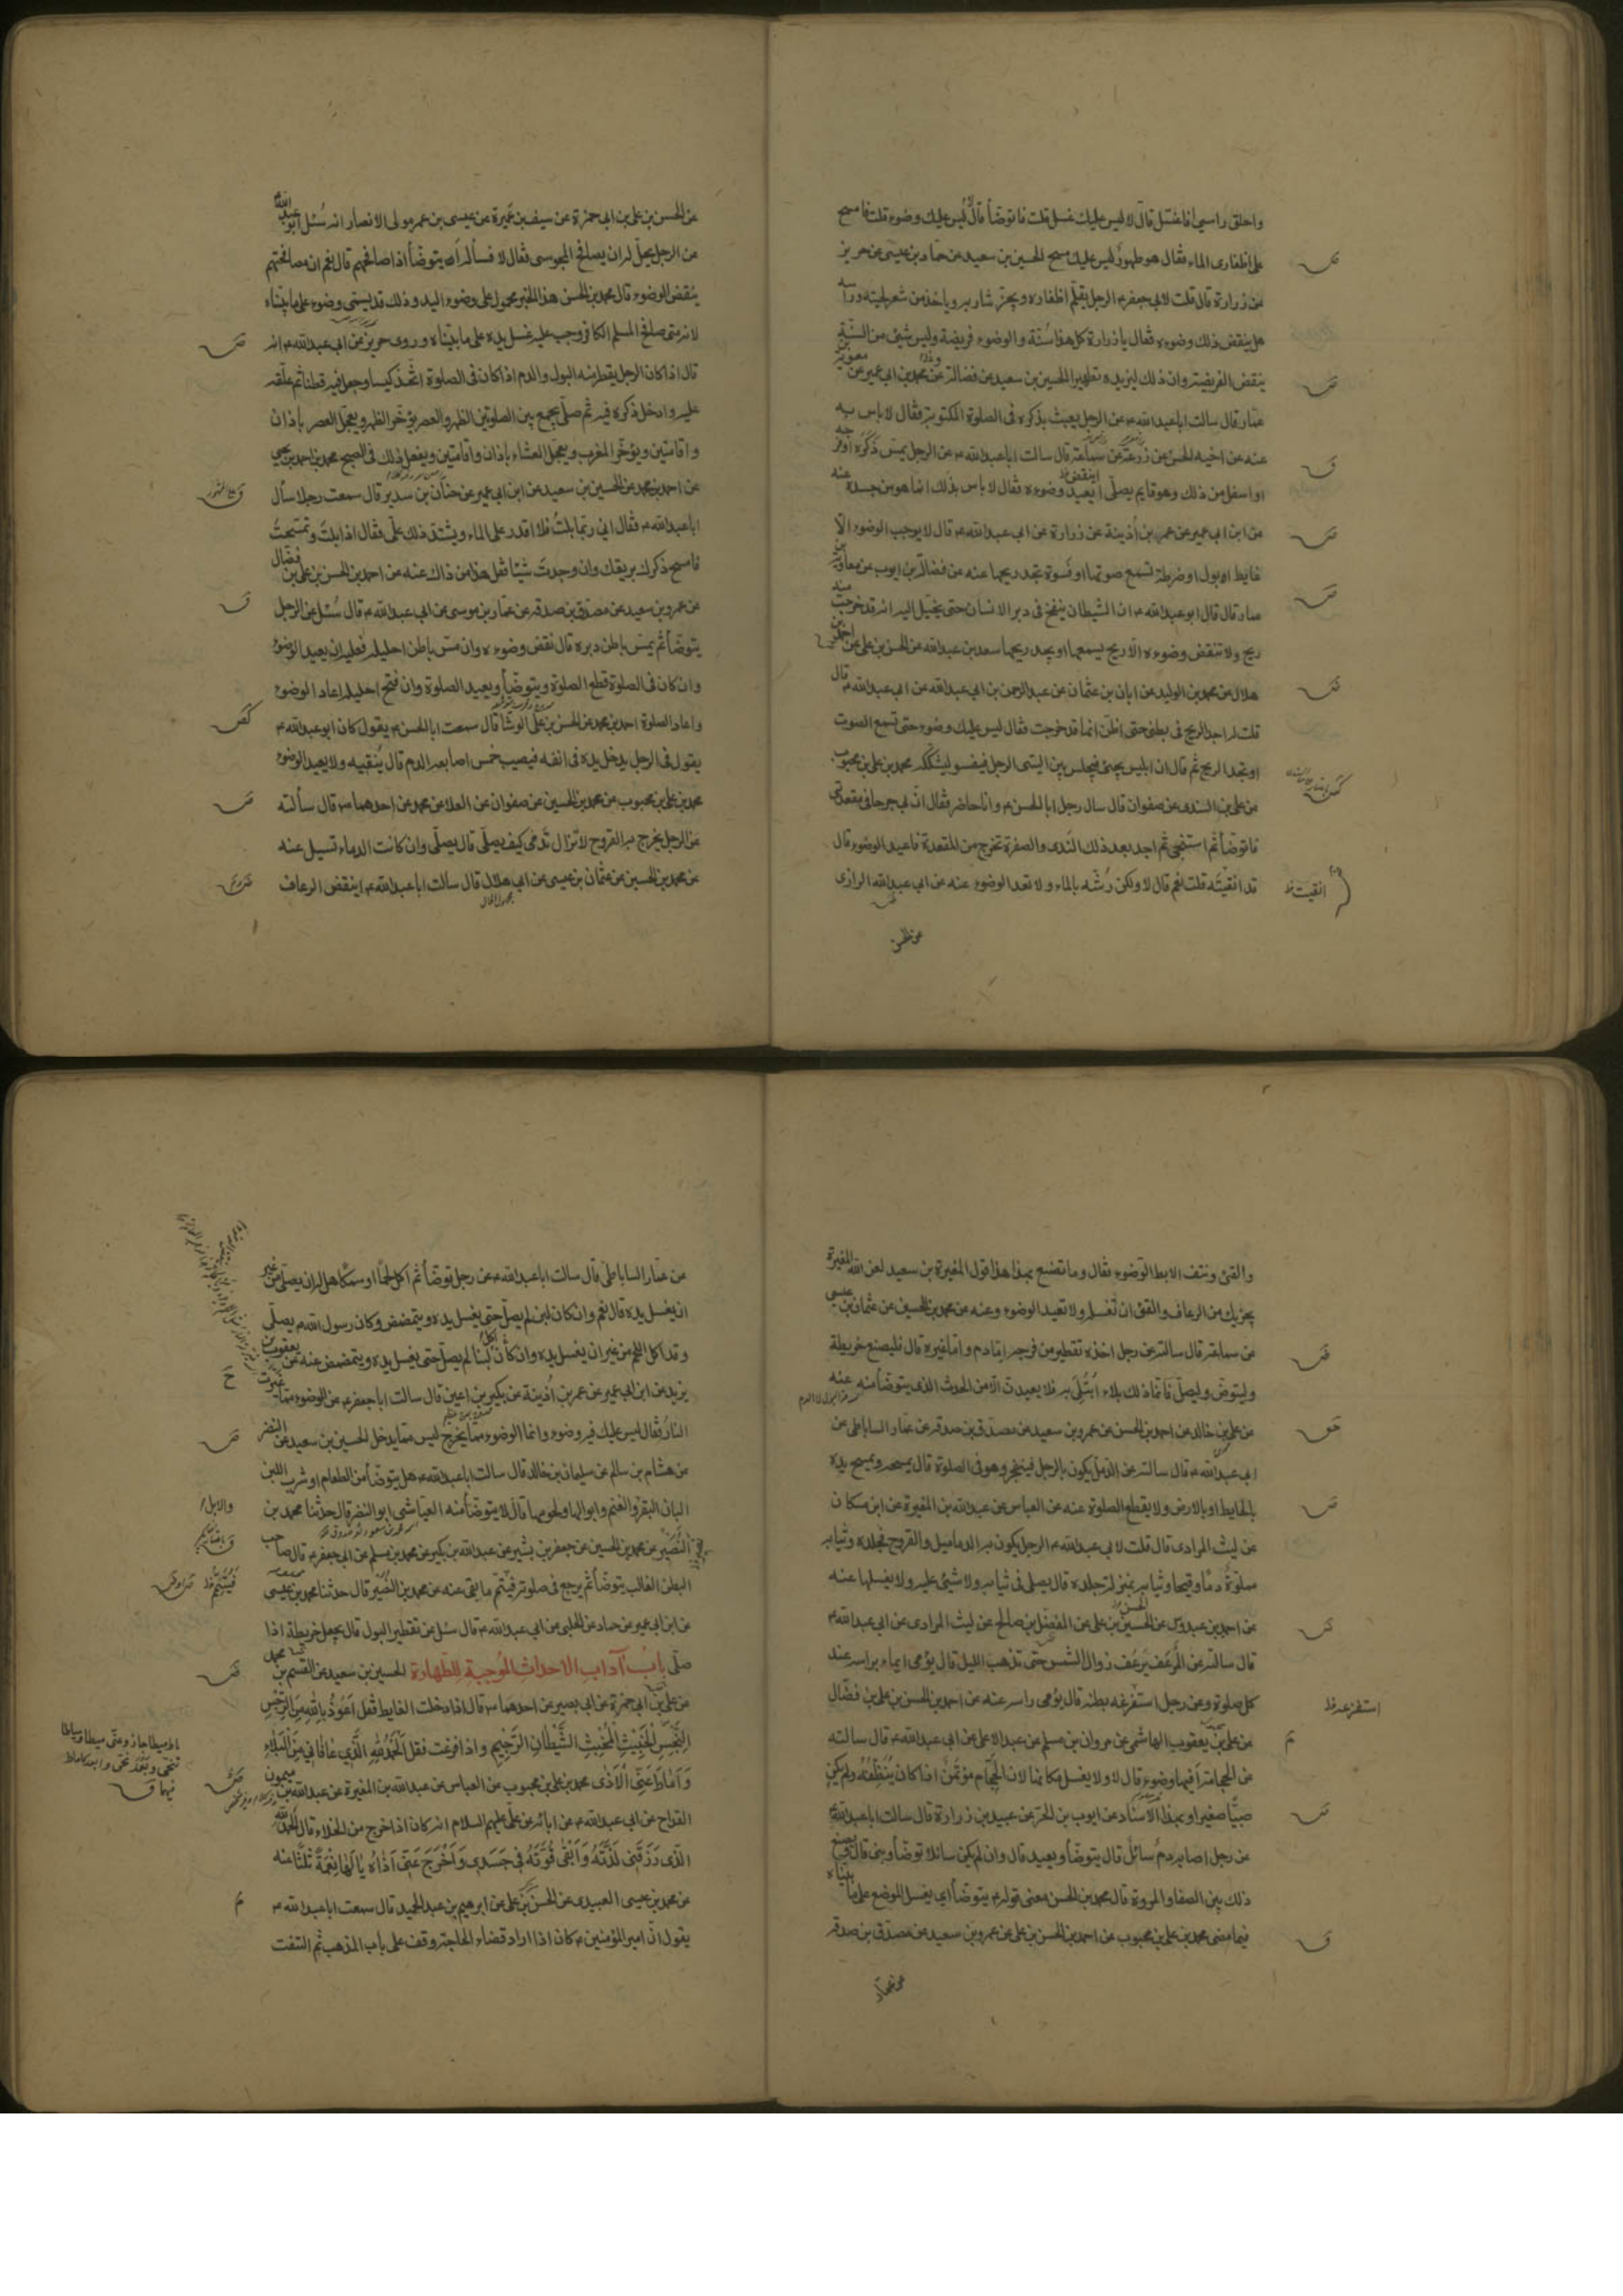 واحلق راسي أفاغتسل قال لا ليس عليك غسل قلت فاتوضأ قال لا ليس عليك وضوء قلت فامسح
على اظفاري الماء فقال هو طهور ليس عليك مسح الحسين بن سعيد عن حماد بن عيسى عن حريز
عن زرارة قال قلت لابي جعفر ع الرجل يقلم اظفاره ويجز شاربه وياخذ من شعر لحيته وراسه
هل ينقض ذلك وضوءه فقال يا زرارة كل هذا سنة والوضوء فريضة وليس شيئ من السنة
ينقض الفريضة وان ذلك ليزيده تطهيرا الحسين بن سعيد عن فضالة عن محمد بن ابي عمير عن معوية بن
عمار قال سالت اباعبدالله ع عن الرجل يعبث بذكره في الصلوة المكتوبة فقال لا باس به
عنه عن اخيه الحسن عن زرعة عن سماعة قال سالت اباعبدالله ع عن الرجل يمس ذكره او فرجه
او اسفل من ذلك وهو قايم يصلي أيعيد وضوءه فقال لا باس بذلك انما هو من جسده عنه
عن ابن ابي عمير عن عمر بن أذينة عن زرارة عن ابي عبدالله ع قال لا يوجب الوضوء الا
غايط او بول او ضرطة تسمع صوتها او فسوة تجد ريحها عنه عن فضالة بن ايوب عن معاوية بن
عمار قال قال ابو عبدالله ع ان الشيطان ينفخ في دبر الانسان حتى يخيل اليه انه قد خرجت منه
ريح ولا تنقض وضوءه الا ريح يسمعها او يجد ريحها سعد بن عبدالله عن الحسن بن علي عن احمد بن
هلال عن محمد بن الوليد عن ابان بن عثمان عن عبدالرحمن بن ابي عبدالله عن ابي عبدالله ع قال
قلت له اجد الريح في بطني حتى اظن انها قد خرجت فقال ليس عليك وضوء حتى تسمع الصوت
او تجد الريح ثم قال ان ابليس يجيئ فيجلس بين اليتي الرجل فيفسو ليشككه محمد بن علي بن محبوب
عن علي بن السندي عن صفوان قال سال رجل ابا الحسن ع وانا حاضر فقال ان بي جرحا في مقعدتي
فاتوضأ ثم استنجي ثم اجد بعد ذلك الندى والصفرة تخرج من المقعدة فاعيد الوضوء قال
قد انقيته قلت نعم قال لا ولكن رشه بالماء ولا تعد الوضوء عنه عن ابي عبدالله الرازي
انقيت خ
عن الحسن
عن الحسن بن علي بن ابي حمزة عن سيف بن عميرة عن عيسى بن عمر مولى الانصار انه سئل ابو عبدالله
عن الرجل يحل له ان يصافح المجوسي فقال لا فساله أيتوضأ اذا صافحهم قال نعم ان مصافحتهم
ينقض الوضوء قال محمد بن الحسن هذا الخبر محمول على وضوء اليد وذلك قد يسمى وضوء على ما بيناه
لانه متى صافح المسلم الكافر وجب عليه غسل يده على ما بيناه وروى حريز عن ابي عبدالله ع انه
قال اذا كان الرجل يقطر منه البول والدم اذا كان في الصلوة اتخذ كيسا وجعل فيه قطنا ثم علقه
عليه وادخل ذكره فيه ثم صلى يجمع بين الصلوتين الظهر والعصر يؤخر الظهر ويعجل العصر باذان
واقامتين ويؤخر المغرب ويعجل العشاء باذان واقامتين ويفعل ذلك في الصبح محمد بن احمد بن يحيى
عن احمد بن محمد عن الحسين بن سعيد عن ابن ابي عمير عن حنان بن سدير قال سمعت رجلا سأل
اباعبدالله ع فقال اني ربما بلت فلا اقدر على الماء ويشتد ذلك علي فقال اذا بلت وتمسحت
فامسح ذكرك بريقك وان وجدت شيئا فقل هذا من ذاك عنه عن احمد بن الحسن بن علي بن فضال
عن عمرو بن سعيد عن مصدق بن صدقة عن عمار بن موسى عن ابي عبدالله ع قال سئل عن الرجل
يتوضأ ثم يمس باطن دبره قال نقض وضوءه وان مس باطن احليله فعليه ان يعيد الوضوء
وان كان في الصلوة قطع الصلوة ويتوضأ ويعيد الصلوة وان فتح احليله اعاد الوضوء
واعاد الصلوة احمد بن محمد عن الحسن بن علي الوشا قال سمعت ابا الحسن ع يقول كان ابو عبدالله ع
يقول في الرجل يدخل يده في انفه فيصيب خمس اصابعه الدم قال ينقيه ولا يعيد الوضوء
محمد بن علي بن محبوب عن محمد بن الحسين عن صفوان عن العلا عن محمد عن احدهما ع قال سألته
عن الرجل يخرج به القروح لا تزال تدمى كيف يصلي قال يصلي وان كانت الدماء تسيل عنه
عن محمد بن الحسين عن عثمان بن عيسى عن ابي هلال قال سالت اباعبدالله ع اينقض الرعاف
والقئ ونتف الابط الوضوء فقال وما تصنع بهذا هذا قول المغيرة بن سعيد لعن الله المغيرة
يجزيك من الرعاف والقئ ان تغسله ولا تعيد الوضوء وعنه عن محمد بن الحسين عن عثمان بن عيسى
عن سماعة قال سالته عن رجل اخذه تقطير من فرجه اما دم واما غيره قال فليصنع خريطة
وليتوضّ وليصلّ فانما ذلك بلاء ابتلي به فلا يعيدن الا من الحدث الذي يتوضأ منه عنه
عن علي بن خالد عن احمد بن الحسن عن عمرو بن سعيد عن مصدق بن صدقة عن عمار الساباطي عن
ابي عبدالله ع قال سالته عن الدمل يكون بالرجل فينفجر وهو في الصلوة قال يمسحه ويمسح يده
بالحايط او بالارض ولا يقطع الصلوة عنه عن العباس عن عبدالله بن المغيرة عن ابن مسكان
عن ليث المرادي قال قلت لابي عبدالله ع الرجل يكون به الدماميل والقروح فجلده وثيابه
مملوة دما وقيحا وثيابه بمنزلة جلده قال يصلي في ثيابه ولا شيئ عليه ولا يغسلها عنه
عن احمد بن عبدوس عن الحسين بن علي عن المفضل بن صالح عن ليث المرادي عن ابي عبدالله ع
قال سالته عن المرعف يرعف زوال الشمس حتى تذهب الليل قال يؤمي ايماء براسه عند
كل صلوة وعن رجل استفرغه بطنه قال يؤمى راسه عنه عن احمد بن الحسن بن علي بن فضال
عن علي بن يعقوب الهاشمي عن مروان بن مسلم عن عبد الاعلى عن ابي عبدالله ع قال سالته
عن الحجامة أفيها وضوء قال لا ولا يغسل مكانها لان الحجام مؤتمن اذا كان ينظفه ولم يكن
صبيا صغيرا وبهذا الاسناد عن ايوب بن الحر عن عبيد بن زرارة قال سالت اباعبدالله ع
عن رجل اصابه دم سائل قال يتوضأ ويعيد قال وان لم يكن سائلا توضأ وبنى قال ويصنع
ذلك بين الصفا والمروة قال محمد بن الحسن معنى قوله ع يتوضأ اي يغسل الموضع على ما بيناه
فيما مضى محمد بن علي بن محبوب عن احمد بن الحسن بن علي عن عمرو بن سعيد عن مصدق بن صدقة
عن عمار
عن عمار الساباطي قال سالت اباعبدالله ع عن رجل توضأ ثم اكل لحما او سمكا هل له ان يصلي من غير
ان يغسل يده قال نعم وان كان لبن لم يصل حتى يغسل يده ويتمضمض وكان رسول الله ص يصلي
وقد اكل اللحم من غير ان يغسل يده وان كان لبنا لم يصل حتى يغسل يده ويتمضمض عنه عن يعقوب بن
يزيد عن ابن ابي عمير عن عمر بن أذينة عن بكير بن اعين قال سالت اباجعفر ع عن الوضوء مما غيرت
النار فقال ليس عليك فيه وضوء وانما الوضوء مما يخرج ليس مما يدخل الحسين بن سعيد عن النضر
عن هشام بن سالم عن سليمان بن خالد قال سالت اباعبدالله ع هل يتوضأ من الطعام او شرب اللبن
البان البقر والغنم وابوالها ولحومها قال لا يتوضأ منه العياشي ابو النضر قال حدثنا محمد بن
والابل
النصير عن محمد بن الحسين عن جعفر بن بشير عن عبدالله بن بكير عن محمد بن مسلم عن ابي جعفر ع قال صاحب
البطن الغالب يتوضأ ثم يرجع في صلوته فيتم ما بقي عنه عن محمد بن النصير قال حدثنا محمد بن عيسى
عن ابن ابي عمير عن حماد عن الحلبي عن ابي عبدالله ع قال سئل عن تقطير البول قال يجعل خريطة اذا
صلى باب آداب الاحداث الموجبة للطهارة الحسين بن سعيد عن القسم بن محمد
عن علي بن ابي حمزة عن ابي بصير عن احدهما ع قال اذا دخلت الغايط فقل اعوذ بالله من الرجس
النجس الخبيث المخبث الشيطان الرجيم واذا فرغت فقل الحمد لله الذي عافاني من البلاء
واماط عني الاذى محمد بن علي بن محبوب عن العباس عن عبدالله بن المغيرة عن عبدالله بن ميمون
القداح عن ابي عبدالله ع عن ابائه عن علي عليهم السلام انه كان اذا خرج من الخلاء قال الحمد لله
الذي رزقني لذته وابقى قوته في جسدي واخرج عني اذاه يا لها نعمة ثلثا عنه
عن محمد بن عيسى العبيدي عن الحسن بن علي عن ابرهيم بن عبد الحميد قال سمعت اباعبدالله ع
يقول ان امير المؤمنين ع كان اذا اراد قضاء الحاجة وقف على باب المذهب ثم التفت